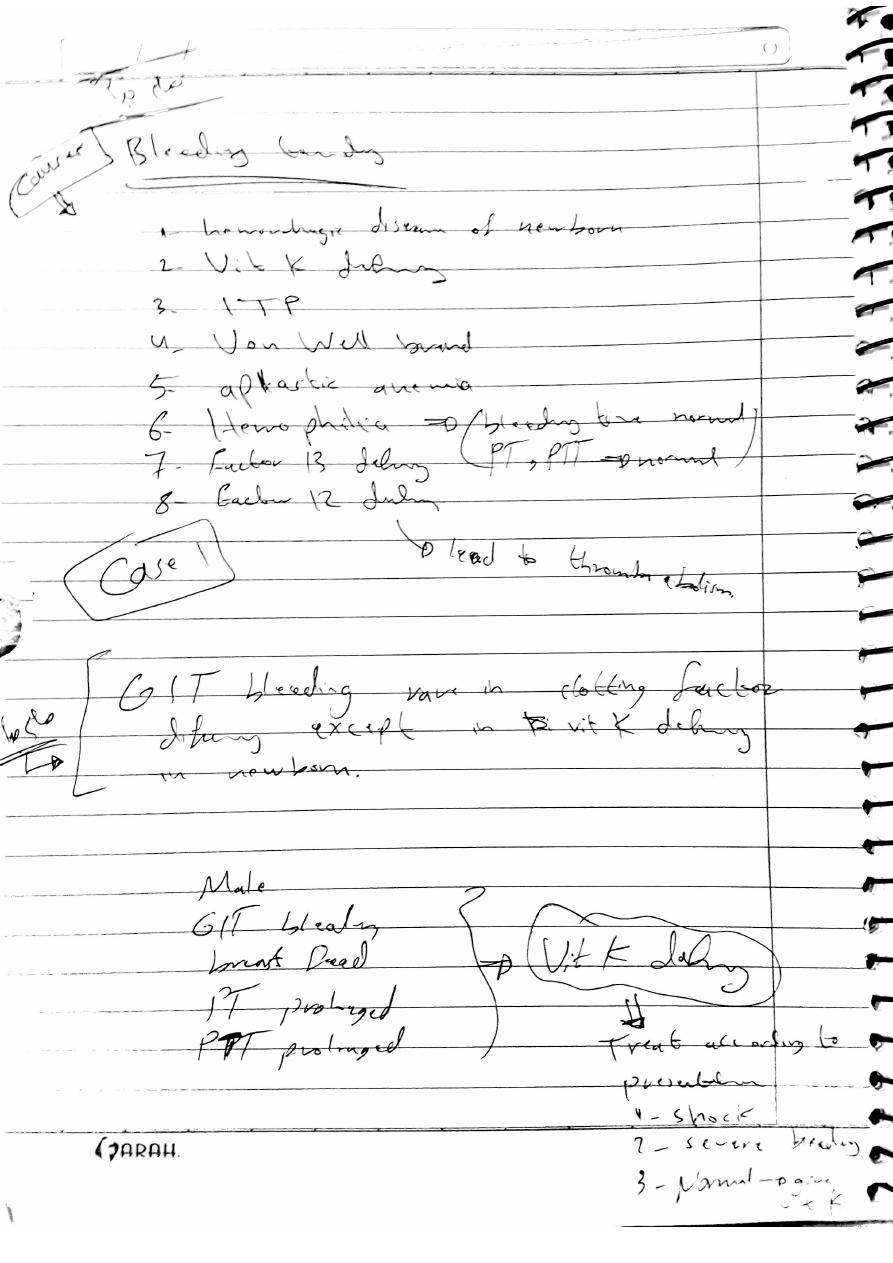 Causes
Bleeding tendency
1- hemorrhagic disease of newborn
2- Vit K
3- ITP
4- Von Well brand
5- aplastic anemia
6- Hemophilia ⇒ (bleeding time normal
PT, PTT ⇒ normal)
7- Factor 13
8- Factor 12
↳ lead to
Case 1
GIT bleeding rare in clotting factor
except in vit K
in newborn.
Male
GIT bleeding
breast
PT prolonged
PTT prolonged
⇒ Vit K
⇓
Treat according to
presentation
1- shock
2- severe bleeding
3- Normal → give
vit K
SARAH.